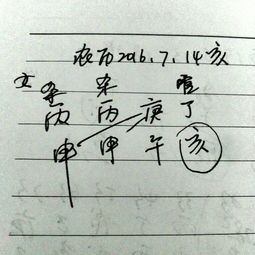 农历2016.7.14亥
女 杀 杀 官
丙 丙 庚 丁
申 申 午 亥